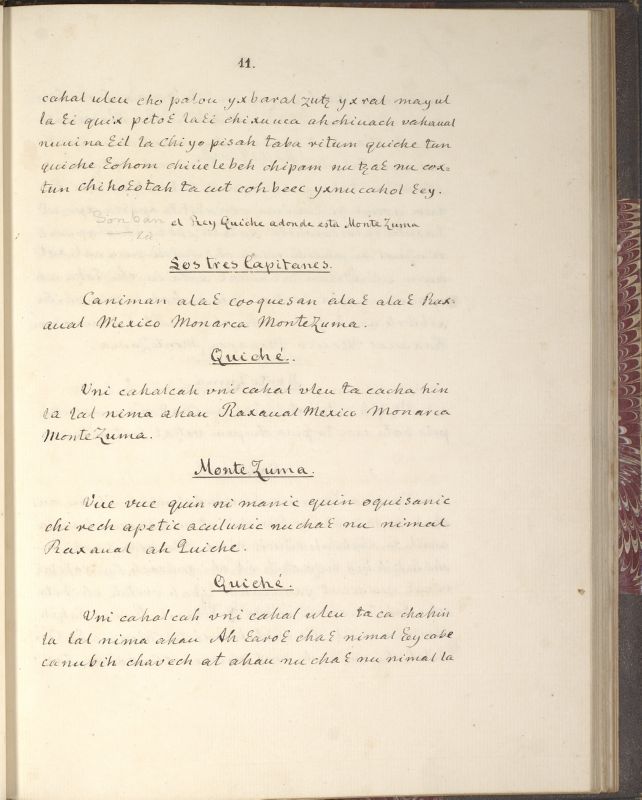 11.
cahal uleu cho palou yxbaral zutz yxral mayul
la Ɛi quix petoƐ laƐi chixuuca ahchiuach vahaual
nuuinaƐil la Chiyo pisah taba ritum quiche tun
quiche Ɛohom chiüelebeh chipam nu tzaƐ nu cox=
tun chihoƐotah ta cut cohbeec yxnucahol Ɛey.
Son ban el Rey Quiche adonde esta MonteZuma
la
Los tres Capitanes.
Caniman alaƐ cooquesan alaƐ alaƐ Rax-
aual Mexico Monarca MonteZuma.
Quiché.
Vni cahalcah vni cahal vleu ta cacha hin
la lal nima ahau Raxaual Mexico Monarca
MonteZuma.
MonteZuma.
Vue vue quin ni manic quin oquisanic
chi rech apetic aculunic nuchaƐ nu nimal
Raxaual ah Quiche.
Quiché.
Vni cahalcah vni cahal uleu ta ca chahin
la lal nima ahau Ah ƐaroƐ chaƐ nimal Ɛey cabe
canubih chavech at ahau nu chaƐ nu nimal la